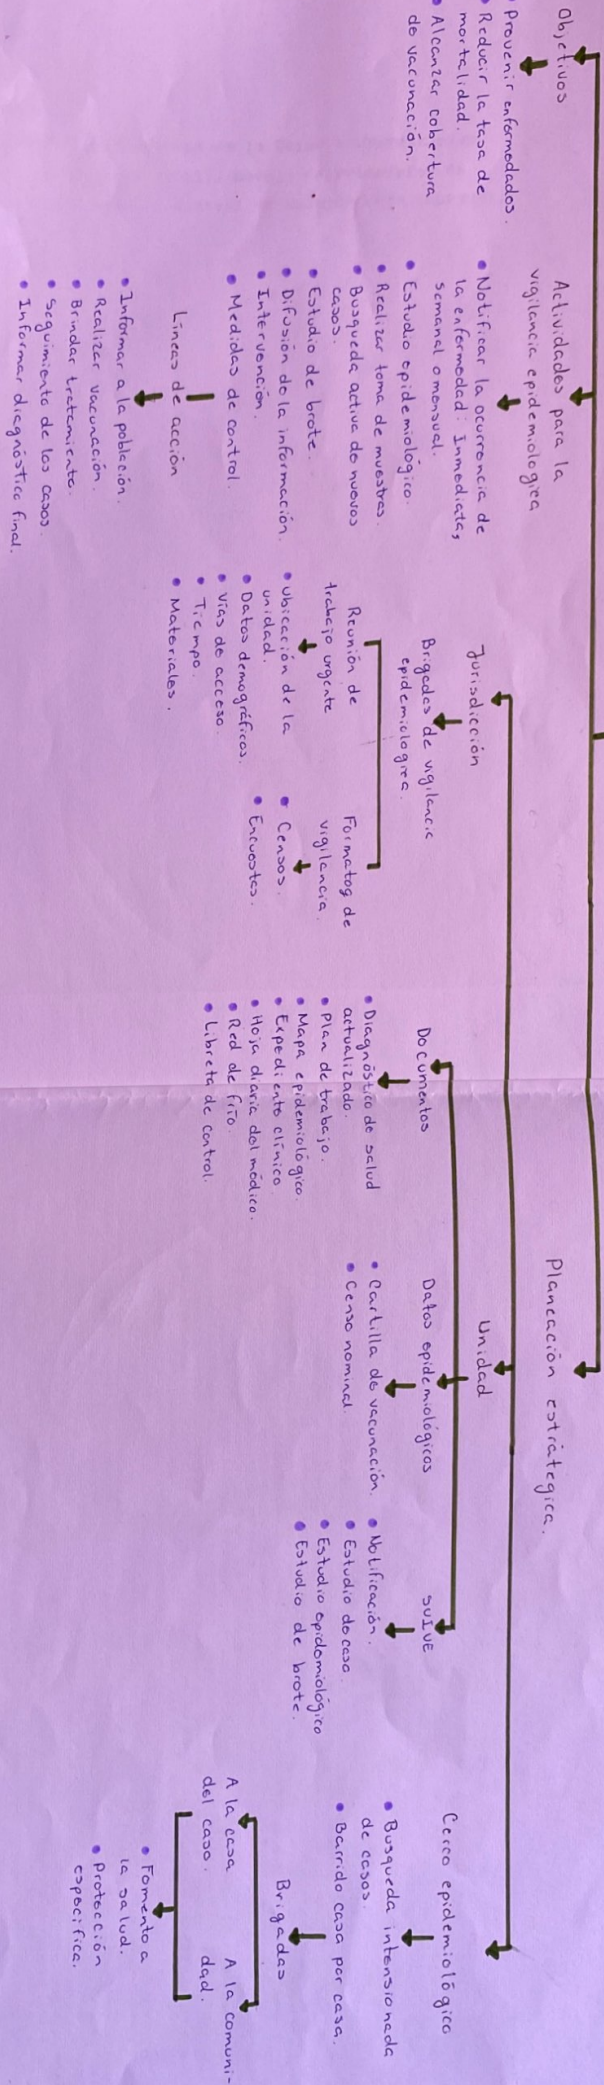 Objetivos
• Prevenir enfermedades.
• Reducir la tasa de
mortalidad.
• Alcanzar cobertura
de vacunación.
Actividades para la
vigilancia epidemiologica
• Notificar la ocurrencia de
la enfermedad: Inmediata,
semanal o mensual.
• Estudio epidemiológico.
• Realizar toma de muestras.
• Busqueda activa de nuevos
casos.
• Estudio de brote.
• Difusión de la información.
• Intervención.
• Medidas de control.
Líneas de acción
• Informar a la población.
• Realizar vacunación.
• Brindar tratamiento.
• Seguimiento de los casos.
• Informar diagnóstico final.
Planeación estrátegica.
Jurisdicción
Brigadas de vigilancia
epidemiologica.
Reunión de
trabajo urgente
• Ubicación de la
unidad.
• Datos demográficos.
• Vías de acceso.
• Tiempo.
• Materiales.
Formatos de
vigilancia.
• Censos.
• Encuestas.
Unidad
Documentos
• Diagnóstico de salud
actualizado.
• Plan de trabajo.
• Mapa epidemiológico.
• Expediente clínico.
• Hoja diaria del médico.
• Red de frío.
• Libreta de control.
Datos epidemiológicos
• Cartilla de vacunación.
• Censo nominal.
SUIVE
• Notificación.
• Estudio de caso.
• Estudio epidemiológico
• Estudio de brote.
Cerco epidemiológico
• Busqueda intensionada
de casos.
• Barrido casa por casa.
Brigadas
A la casa
del caso.
A la comuni-
dad.
• Fomento a
la salud.
• Protección
especifica.